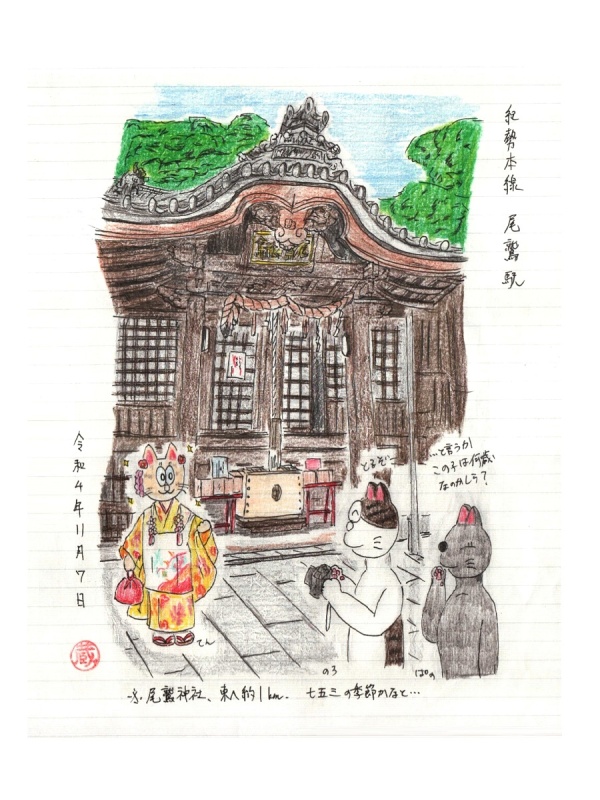 紀勢本線 尾鷲駅
令和4年11月7日
とるぞー
…と言うか
この子は何歳
なのかしら?
てん
のろ
ぱの
蔵
尾鷲神社、東へ約1km. 七五三の季節かなと…